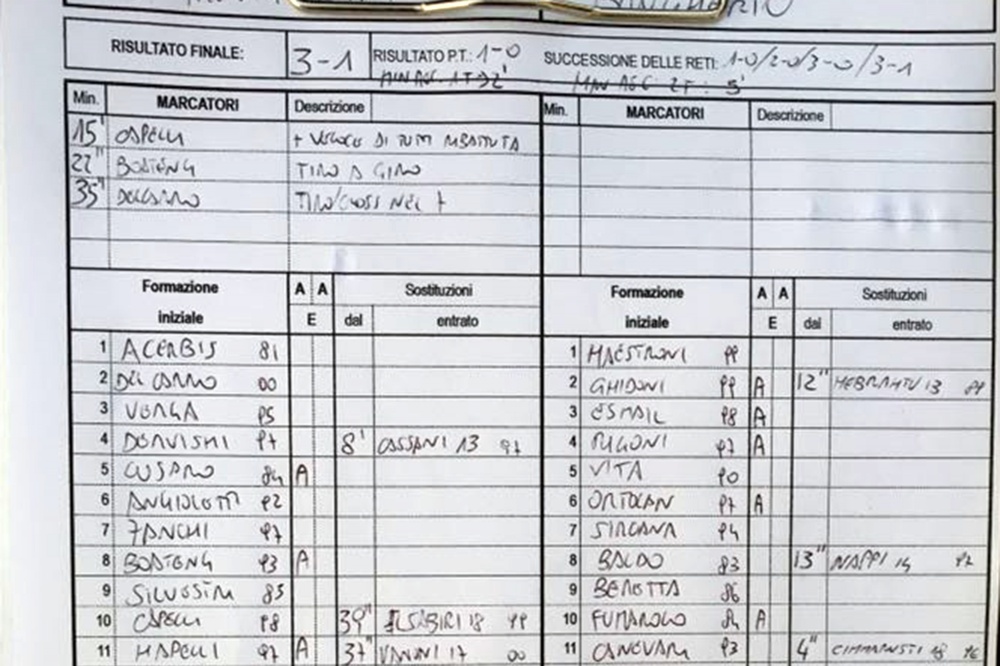 RISULTATO FINALE: 3-1 RISULTATO P.T.: 1-0 SUCCESSIONE DELLE RETI: 1-0/2-0/3-0/3-1
Min. MARCATORI Descrizione Min. MARCATORI Descrizione
15' CAPELLI + VELOCE DI TUTTI
22" BOATENG TIRO A GIRO
35" DEL CARRO TIRO/CROSS NEL 7
Formazione iniziale A A E Sostituzioni dal entrato Formazione iniziale A A E Sostituzioni dal entrato
1 ACERBIS 81 1 MAESTRONI 99
2 DEL CARRO 00 2 GHIDONI 99 A 12" 13 99
3 VERGA 95 3 ESMAIL 98 A
4 DERVISHI 97 8' CASSANI 13 97 4 RIGONI 97 A
5 CUSARO 84 A 5 VITA 90
6 ANGIOLETTI 92 6 ORTOLAN 97 A
7 ZANCHI 97 7 SIRGANA 94
8 BOATENG 93 A 8 BALDO 83 13" NAPPI 14 97
9 SILVESTRI 85 9 BERETTA 86
10 CAPELLI 98 39" ELSABIRI 18 99 10 FUMAROLO 84 A
11 MAPELLI 97 A 37" VANNI 17 00 11 CANOVARI 93 4" 18 96